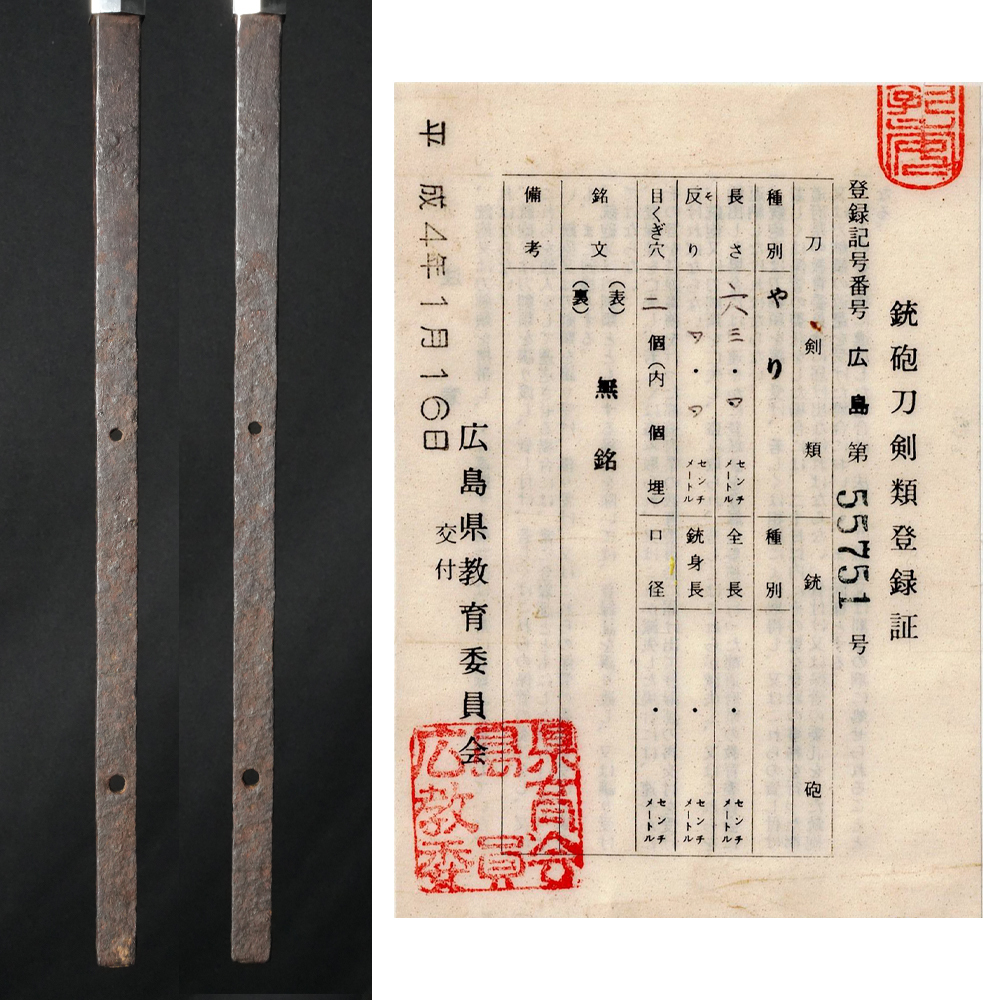 銃砲刀剣類登録証
登録記号番号 広島 第 55751 号
刀剣類
銃砲
種別 やり
種別
長さ 六三・ センチメートル
全長 ・ センチメートル
反り そ ・ センチメートル
銃身長 ・ センチメートル
目くぎ穴 二個(内 個埋)
口径 ・ センチメートル
銘文 (表) (裏) 無銘
備考
平成4年1月16日
広島県教育委員会
交付
広島県
教育
委員会